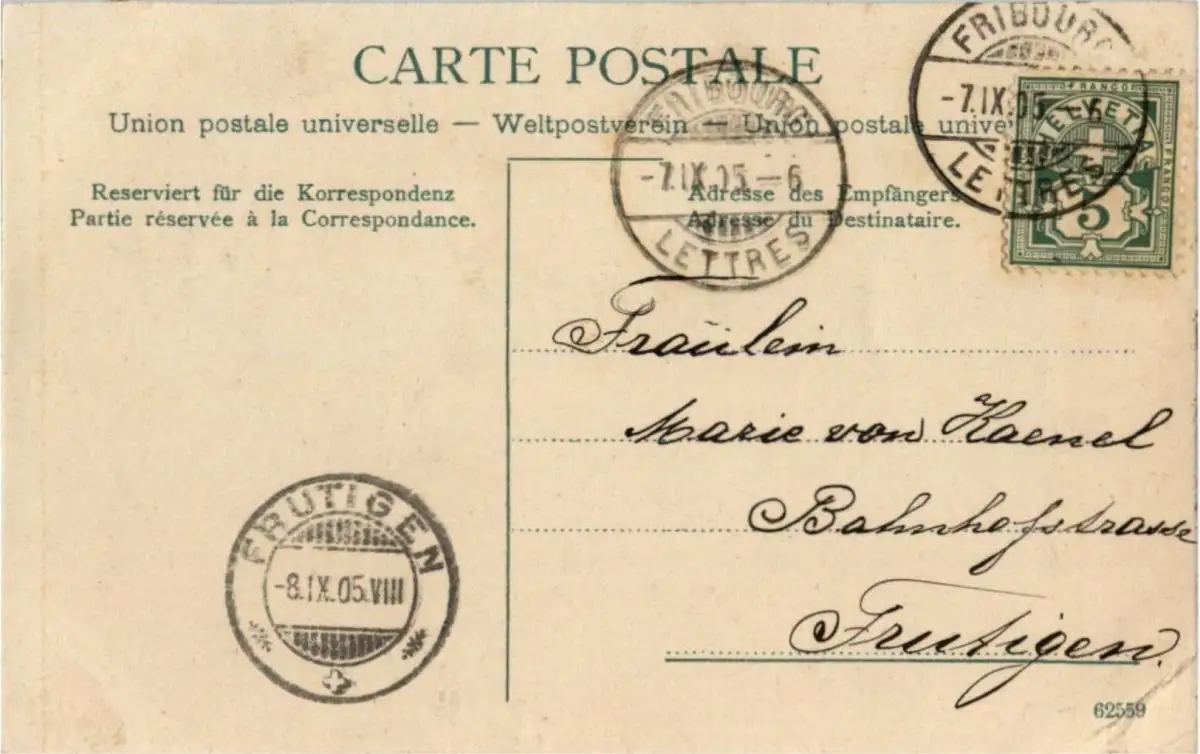 CARTE POSTALE
Union postale universelle — Weltpostverein — Union postale unive
Reserviert für die Korrespondenz
Partie réservée à la Correspondance.
Adresse des Empfängers
Adresse du Destinataire.
FRIBOURG
-7.IX.05-6
LETTRES
FRIBOURG
-7.IX.05-6
LETTRES
FRANCO
HELVETIA
FRANCO
5
Fräulein
Marie von Kaenel
Bahnhofstrasse
Frutigen.
FRUTIGEN
-8.IX.05.VIII
62559